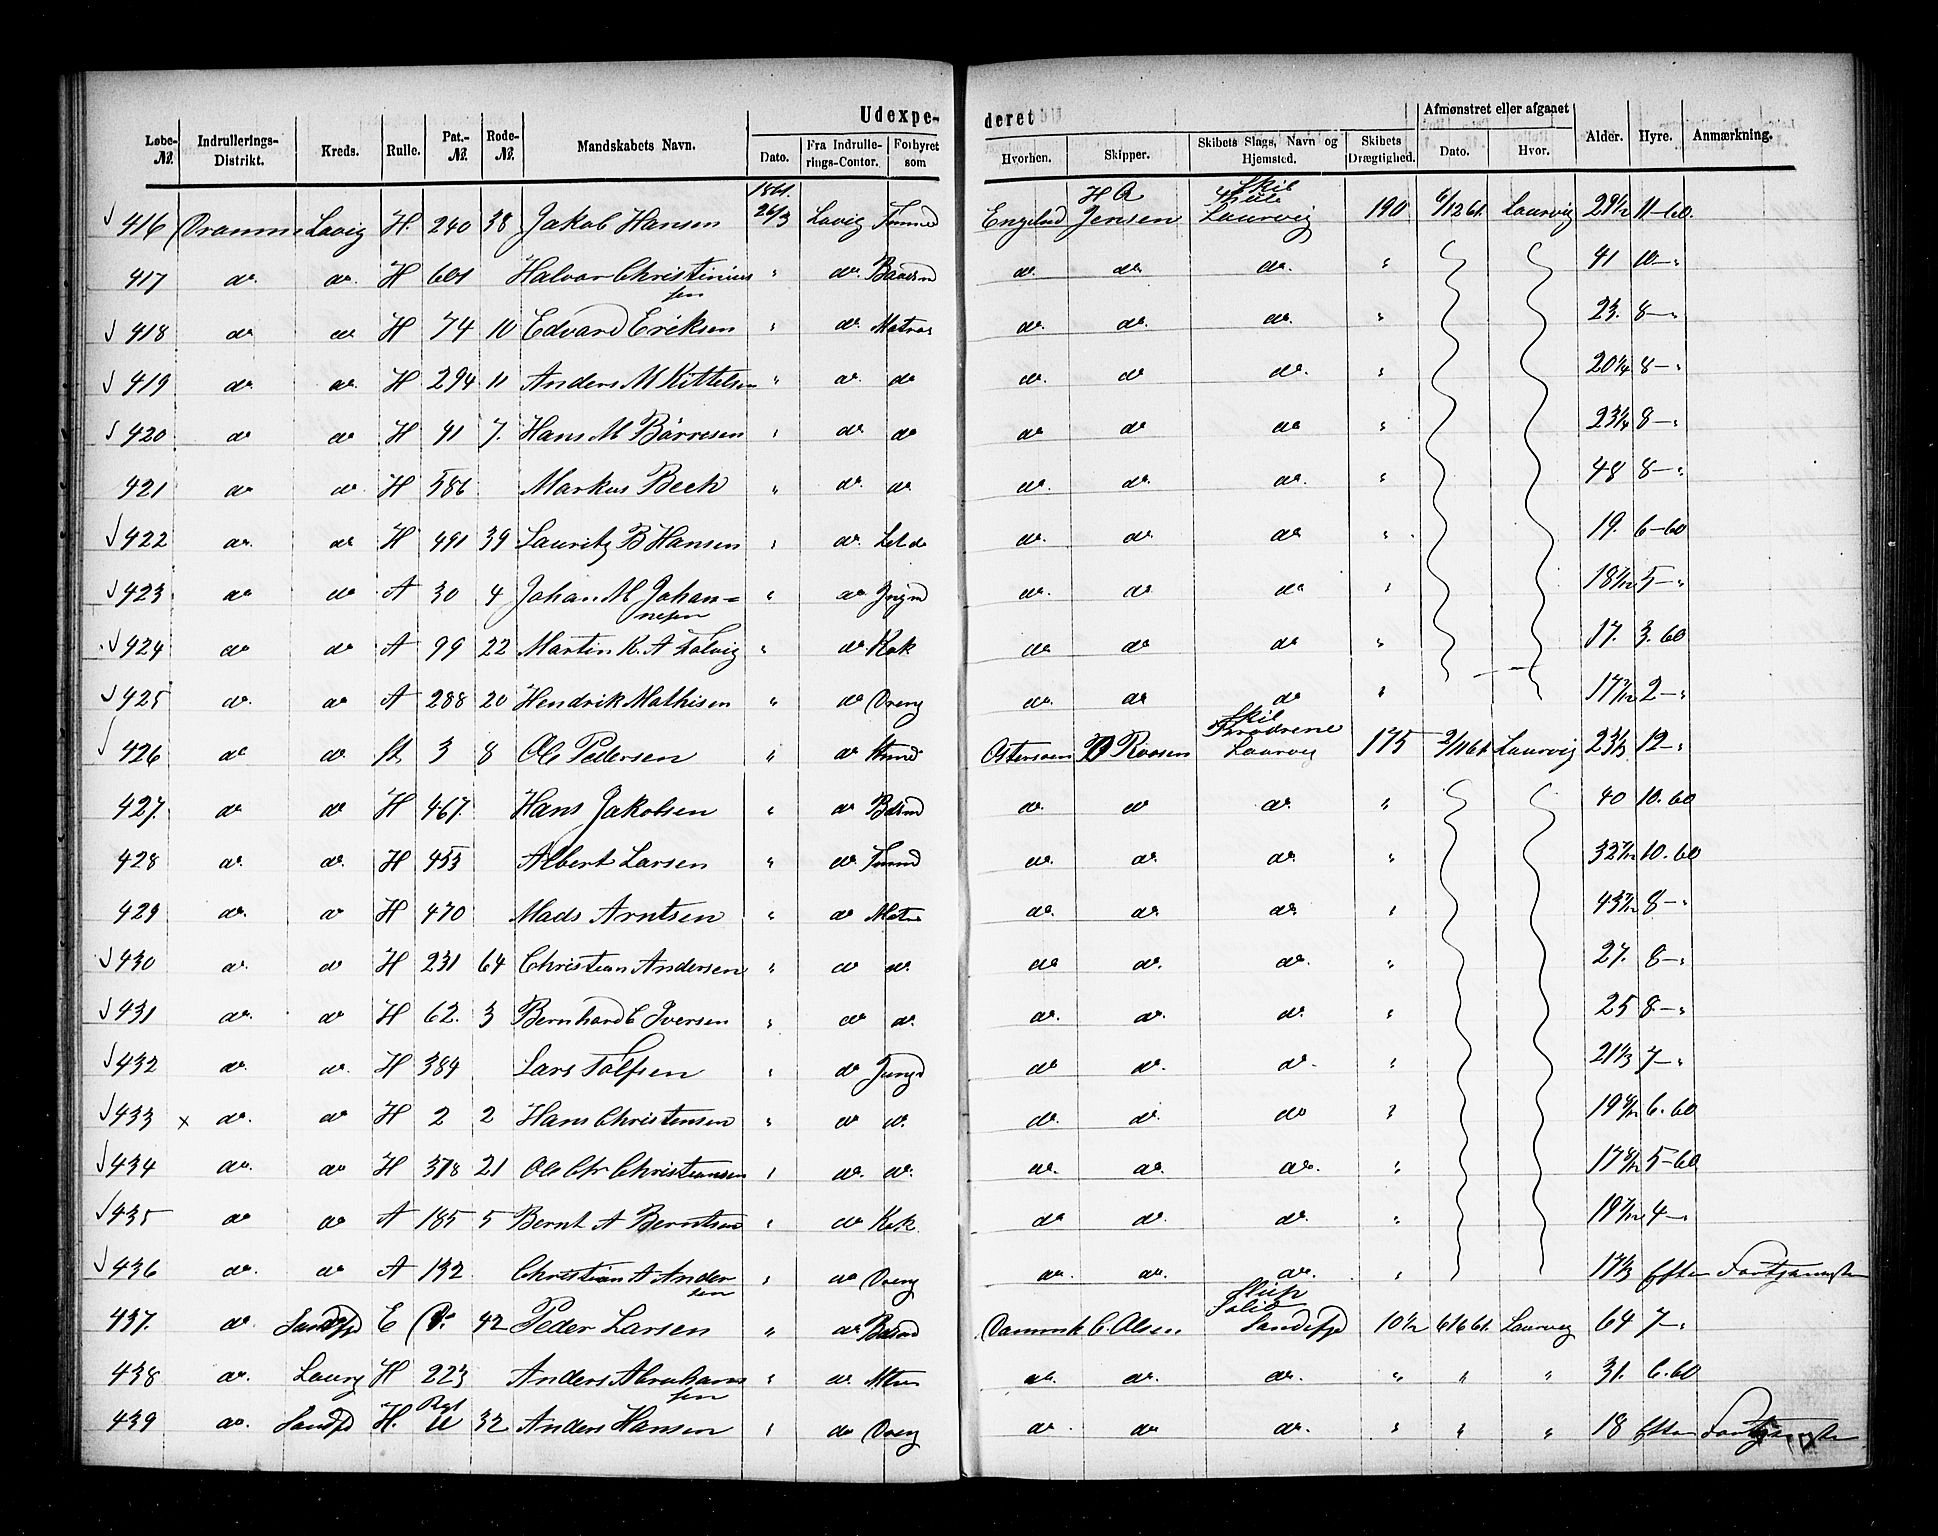 Udexpe- deret
Løbe-№. Indrullerings-Distrikt. Kreds. Rulle. Pat.-№. Rode-№. Mandskabets Navn. Dato. Fra Indrullerings-Contor. Forhyret som Hvorhen. Skipper. Skibets Slags, Navn og Hjemsted. Skibets Drægtighed. Afmønstret eller afgaaet Dato. Hvor. Alder. Hyre. Anmærkning.
1861.
416 Dramm Lavig H. 240 38 Jakob Hansen 26/3 Lavig Tmmd England H A Jensen Skib Thule Laurvig 190 6/12 61. Laurvig 11-60.
417 do do. H 601 Halvor Christiniussen " do. Baadsmd do. do. do. " 41 10-"
418 do do H 74 10 Edvard Eriksen " do. Matros do. do. do. " 23. 8-"
419 do do. H 294 11 Anders M Kittelsen " do. do do. do do. " 20¼ 8-"
420 do do H 41 7. Hans M Børresen " do. do do do. do " 23¼ 8-"
421 do do. H 586 Markus Bech " do. do do. do. do. " 48 8-"
422 do. do H 491 39 Lauritz B Hansen " do. Letdo do. do do " 19. 6-60
423 do do A 30 4 Johan M Johannesen " do Jngmd do. do do " 5-"
424 do do A 99 22 Martin K. A Falvig " do Kok do do do " 17. 3. 60
425 do. do A 288 20 Hendrik Mathisen " do Dreng do. do do " 2-"
426 do do. 3 8 Ole Pedersen " do Østersøen Roosen Skib Brødrene Laurvig 175 2/11 61 Laurvig 23⅓ 12-"
427. do do H 467. Hans Jakobsen " do Badsmd do. do do. " 40 10. 60
428 do. do. H 453 Albert Larsen " do. Tmmd do. do. do. " 10. 60
429 do. do H 470 Mads Arntsen " do Matro do. do. do. " 8-"
430 do. do H 231 64 Christian Andersen " do do. do do. do. " 27. 8-"
431 do. do H 62. 3 Bernhard C Iversen " do do. do. do. do. " 25 8-"
432 do. do. H 384 Lars Tolfsen " do Jungd do do. do. " 21⅓ 7-"
433 x do. do H 2 2 Hans Christensen " do do. do. do. do " 6. 60
434 do. do H 378 21 Ole Chr Christiansen " do. do. do. do. do. " 5-60
435 do do A 185 5 Bernt A Berntsen " do Kok do do. do. " 4-"
436 do. do A 132 Christian A Andersen " do Dreng do. do. do. " 17⅓ Efter Fortjeneste
437. do. Sandefjd E 42 Peder Larsen " do Badsmd Danmrk C. Olsen Slup Sandefjd 10½ 6/6 61. Laurvig 64 7-"
438 do. Laurv H 223 Anders Abrahamsen " do. do. do. do. " " " 31. 6. 60
439 do. Sandfjd H. 32 Anders Hansen " do Dreng do do do. " " " 18 Efter Fortjeneste